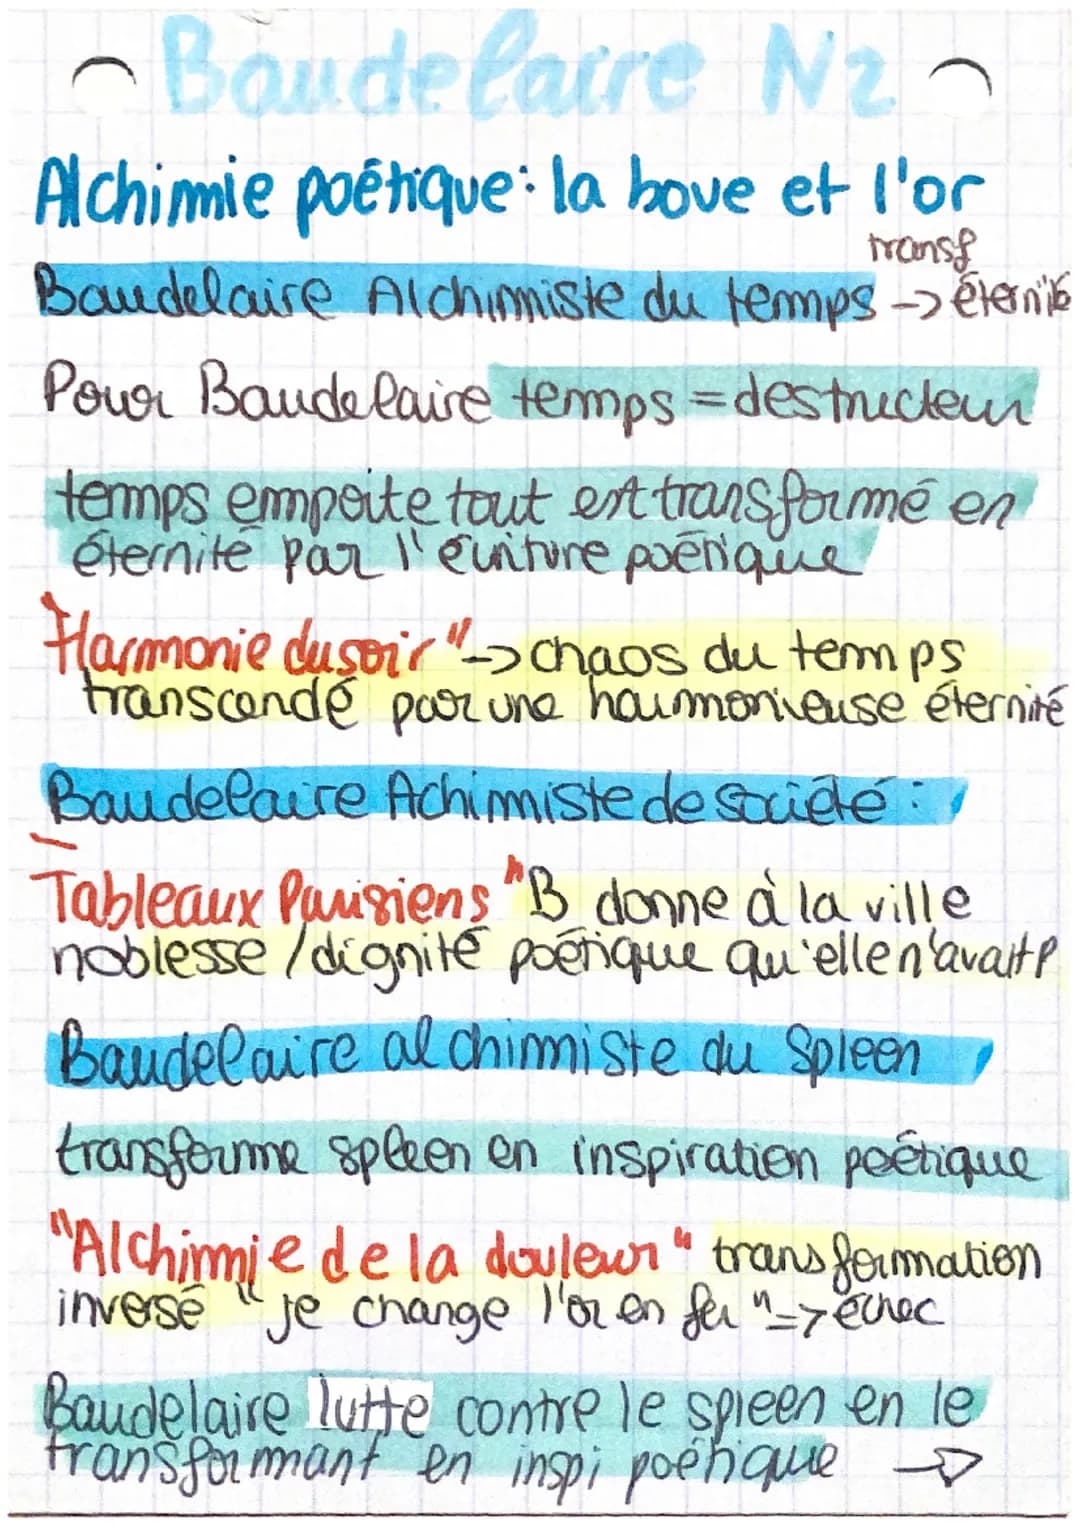 Baudelaire N2
Alchimie poétique: la boue et l'or
transf
Baudelaire Alchimiste du temps -> éternité
Pour Baudelaire temps = destructeur
temps emporte tout est transformé en
éternité par l'écriture poétique
"Harmonie du soir" -> chaos du temps
transcendé par une harmonieuse éternité
Baudelaire Achimiste de société :
"Tableaux Parisiens" B donne à la ville
noblesse / dignité poétique qu'elle n'avait P
Baudelaire alchimiste du Spleen
transforme spleen en inspiration poétique
"Alchimie de la douleur" transformation
inversé "je change l'or en fer" => échec
Baudelaire lutte contre le spleen en le
transformant en inspi poétique ->